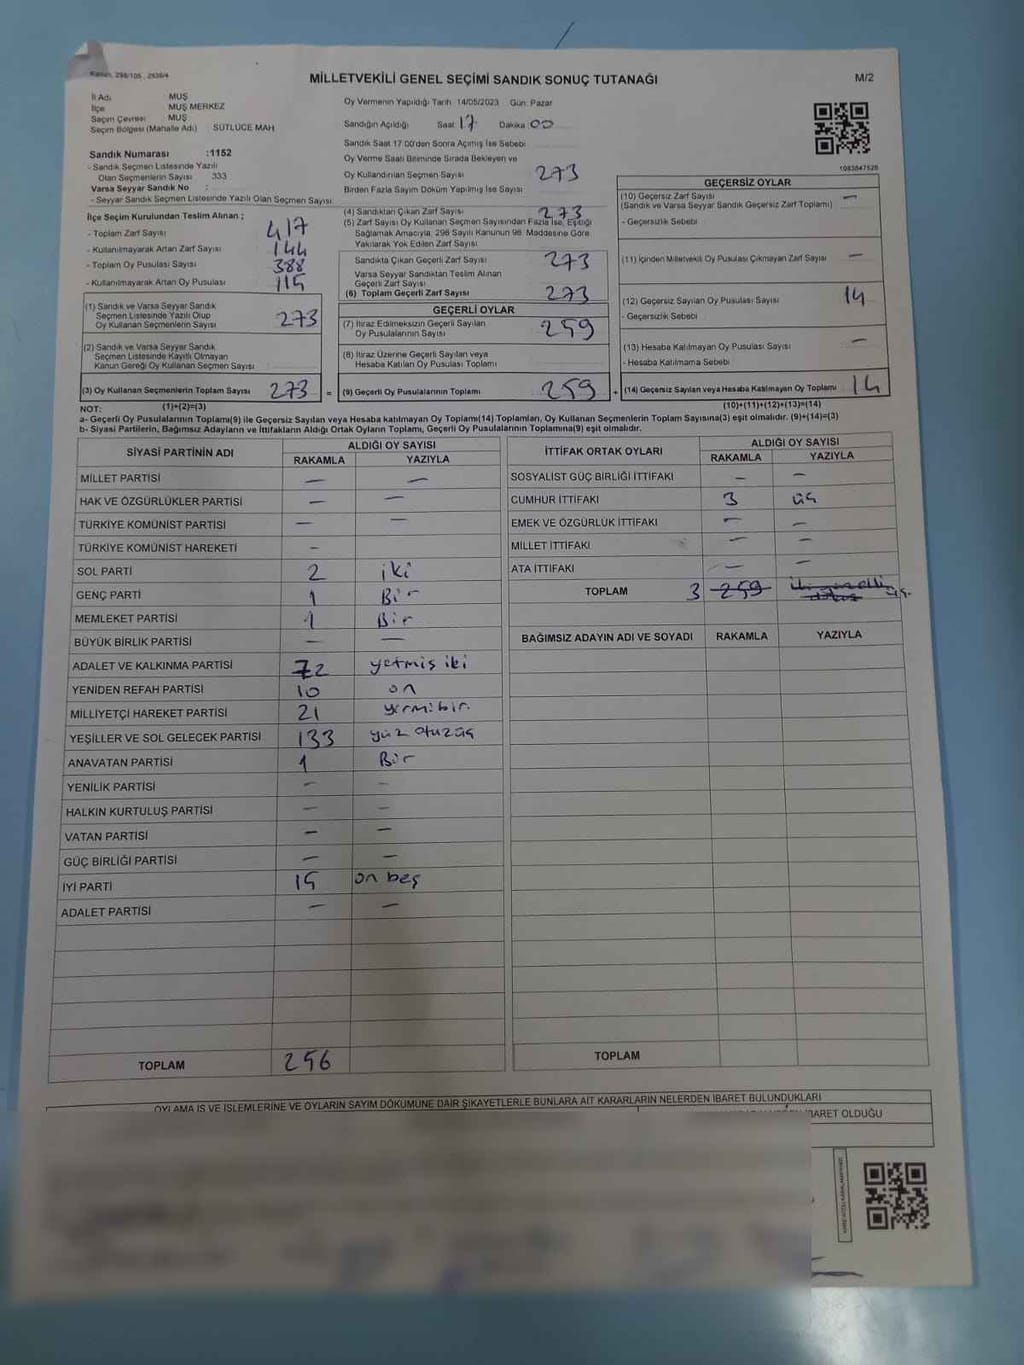 Kanun, 298/105 , 2839/4
MİLLETVEKİLİ GENEL SEÇİMİ SANDIK SONUÇ TUTANAĞI
M/2
İl Adı MUŞ
İlçe MUŞ MERKEZ
Seçim Çevresi MUŞ
Seçim Bölgesi (Mahalle Adı) SÜTLÜCE MAH.
Oy Vermenin Yapıldığı Tarih 14/05/2023 Gün: Pazar
Sandığın Açıldığı Saat 17 Dakika 00
Sandık Saat 17.00'den Sonra Açılmış İse Sebebi
Oy Verme Saati Bitiminde Sırada Bekleyen ve
Oy Kullandırılan Seçmen Sayısı 273
Birden Fazla Sayım Döküm Yapılmış İse Sayısı
Sandık Numarası :1152
- Sandık Seçmen Listesinde Yazılı
Olan Seçmenlerin Sayısı 333
Varsa Seyyar Sandık No :
- Seyyar Sandık Seçmen Listesinde Yazılı Olan Seçmen Sayısı
İlçe Seçim Kurulundan Teslim Alınan ;
- Toplam Zarf Sayısı 417
- Kullanılmayarak Artan Zarf Sayısı 144
- Toplam Oy Pusulası Sayısı 388
- Kullanılmayarak Artan Oy Pusulası 115
(1) Sandık ve Varsa Seyyar Sandık
Seçmen Listesinde Yazılı Olup
Oy Kullanan Seçmenlerin Sayısı 273
(2) Sandık ve Varsa Seyyar Sandık
Seçmen Listesinde Kayıtlı Olmayan
Kanun Gereği Oy Kullanan Seçmen Sayısı
(3) Oy Kullanan Seçmenlerin Toplam Sayısı 273 =
(1)+(2)=(3)
(4) Sandıktan Çıkan Zarf Sayısı 273
(5) Zarf Sayısı Oy Kullanan Seçmen Sayısından Fazla İse, Eşitliği
Sağlamak Amacıyla, 298 Sayılı Kanunun 98. Maddesine Göre
Yakılarak Yok Edilen Zarf Sayısı
Sandıkta Çıkan Geçerli Zarf Sayısı 273
Varsa Seyyar Sandıktan Teslim Alınan
Geçerli Zarf Sayısı
(6) Toplam Geçerli Zarf Sayısı 273
GEÇERLİ OYLAR
(7) İtiraz Edilmeksizin Geçerli Sayılan
Oy Pusulalarının Sayısı 259
(8) İtiraz Üzerine Geçerli Sayılan veya
Hesaba Katılan Oy Pusulası Toplamı
(9) Geçerli Oy Pusulalarının Toplamı 259 +
1083847526
GEÇERSİZ OYLAR
(10) Geçersiz Zarf Sayısı —
(Sandık ve Varsa Seyyar Sandık Geçersiz Zarf Toplamı)
- Geçersizlik Sebebi
(11) İçinden Milletvekili Oy Pusulası Çıkmayan Zarf Sayısı —
(12) Geçersiz Sayılan Oy Pusulası Sayısı 14
- Geçersizlik Sebebi
(13) Hesaba Katılmayan Oy Pusulası Sayısı —
- Hesaba Katılmama Sebebi
(14) Geçersiz Sayılan veya Hesaba Katılmayan Oy Toplamı 14
(10)+(11)+(12)+(13)=(14)
NOT:
a- Geçerli Oy Pusulalarının Toplamı(9) ile Geçersiz Sayılan veya Hesaba katılmayan Oy Toplamı(14) Toplamları, Oy Kullanan Seçmenlerin Toplam Sayısına(3) eşit olmalıdır. (9)+(14)=(3)
b- Siyasi Partilerin, Bağımsız Adayların ve İttifakların Aldığı Ortak Oyların Toplamı, Geçerli Oy Pusulalarının Toplamına(9) eşit olmalıdır.
SİYASİ PARTİNİN ADI ALDIĞI OY SAYISI
RAKAMLA YAZIYLA
MİLLET PARTİSİ — —
HAK VE ÖZGÜRLÜKLER PARTİSİ — —
TÜRKİYE KOMÜNİST PARTİSİ — —
TÜRKİYE KOMÜNİST HAREKETİ –
SOL PARTİ 2 iki
GENÇ PARTİ 1 Bir
MEMLEKET PARTİSİ 1 Bir
BÜYÜK BİRLİK PARTİSİ — —
ADALET VE KALKINMA PARTİSİ 72 yetmiş iki
YENİDEN REFAH PARTİSİ 10 on
MİLLİYETÇİ HAREKET PARTİSİ 21 yirmibir
YEŞİLLER VE SOL GELECEK PARTİSİ 133 yüz otuzüç
ANAVATAN PARTİSİ 1 Bir
YENİLİK PARTİSİ — —
HALKIN KURTULUŞ PARTİSİ — —
VATAN PARTİSİ — —
GÜÇ BİRLİĞİ PARTİSİ — —
İYİ PARTİ 15 on beş
ADALET PARTİSİ — —
TOPLAM 256
İTTİFAK ORTAK OYLARI ALDIĞI OY SAYISI
RAKAMLA YAZIYLA
SOSYALİST GÜÇ BİRLİĞİ İTTİFAKI — —
CUMHUR İTTİFAKI 3 üç
EMEK VE ÖZGÜRLÜK İTTİFAKI — —
MİLLET İTTİFAKI — —
ATA İTTİFAKI — —
TOPLAM 3 259 üç.
BAĞIMSIZ ADAYIN ADI VE SOYADI RAKAMLA YAZIYLA
TOPLAM
OYLAMA İŞ VE İŞLEMLERİNE VE OYLARIN SAYIM DÖKÜMÜNE DAİR ŞİKAYETLERLE BUNLARA AİT KARARLARIN NELERDEN İBARET BULUNDUKLARI
İBARET OLDUĞU